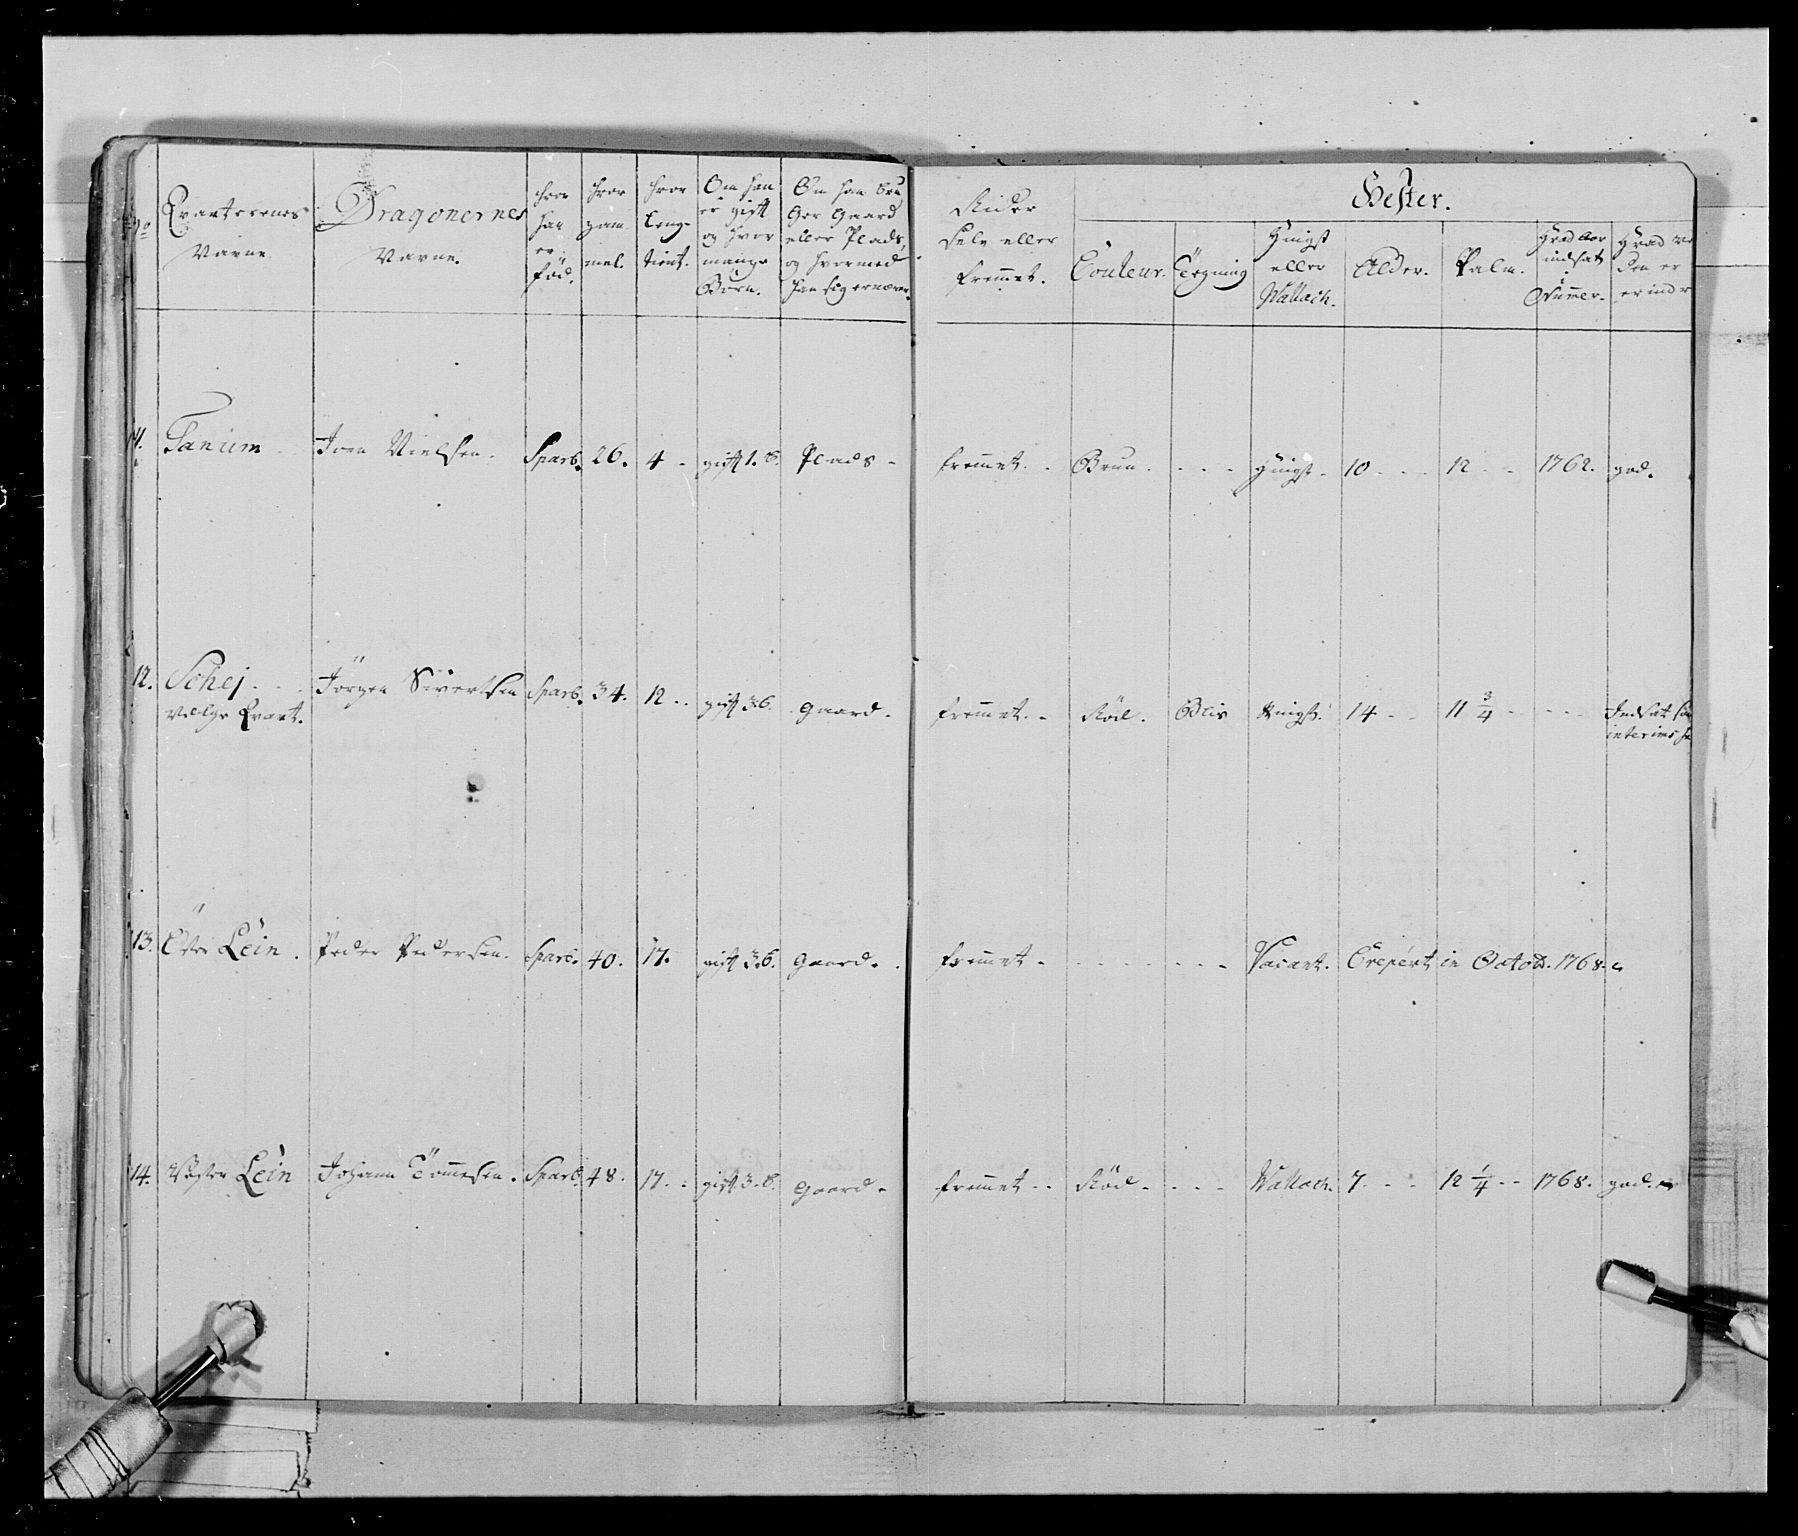 No
Qvarterernes Navne
Dragonernes Navne.
hvor han er föd.
hvor gam- mel.
hvor længe tient.
Om han er gift og hvor mange Börn.
Om han bru ger Gaard eller Plads, og hvormed han sig ernærer.
Rider selv eller fremmet.
Hester.
Couleur.
Tegning
Hingst eller Wallach.
Alder.
Palm.
Hvad Aar indsat i Nummer.
Hvad den er
11. Tanum Joen Nielsen. Sparb. 26. 4 - gift 1. b. Plads - fremmet. - Brun. - - - Hingst - 10 - - - 12 - - 1762. god.
12. Schej - - Jörgen Sivertsen Sparb. 34. 12 - - gift 3. b. Gaard - fremmet. - Röd. Blis Hingst. 14 - - 11 3/4 - - - Indsat
Velge Qvart. interims
13. Öster Lein. Peder Pedersen. Sparb. 40. 17. gift 3. b. Gaard. - fremmet - - - - - - - Vacant. Crepert in Octob. 1768.
14. Vester Lein Johann Tömmesen. Sparb. 48. 17. - gift 3. b. Gaard - fremmet - - Röd - - - - Wallach. 7. - - 12 1/4 - - 1768. god.